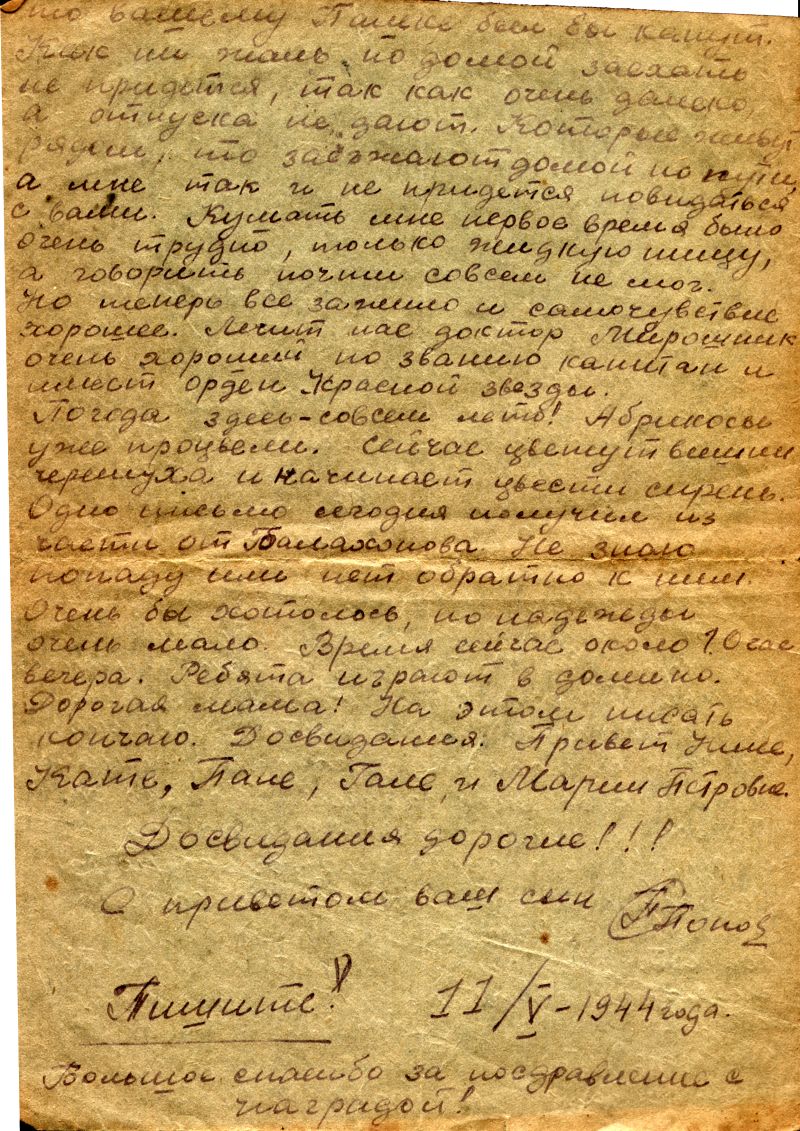 то вашему Пашке был бы капут.
Как ни жаль, но домой заехать
не придется, так как очень далеко,
а отпуска не дают. Которые живут
рядом, то заезжают домой по пути,
а мне так и не придется повидаться
с вами. Кушать мне первое время было
очень трудно, только жидкую пищу,
а говорить почти совсем не мог.
Но теперь все зажило и самочувствие
хорошее. Лечит нас доктор Мирошник
очень хороший по званию капитан и
имеет орден Красной звезды.
Погода здесь - совсем лето! Абрикосы
уже процвели. Сейчас цветут вишни
черемуха и начинает цвести сирень.
Одно письмо сегодня получил из
части от Балахонова. Не знаю
попаду или нет обратно к ним.
Очень бы хотолось, но надежды
очень мало. Время сейчас около 10 час
вечера. Ребята играют в домино.
Дорогая мама! На этом писать
кончаю. Досвидания. Привет Нине,
Кате, Пане, Гале, и Марии Петровне.
Досвидания дорогие!!!
С приветом ваш сын ППопов
Пишите!
11/V-1944 года.
Большое спасибо за поздравление с
наградой!